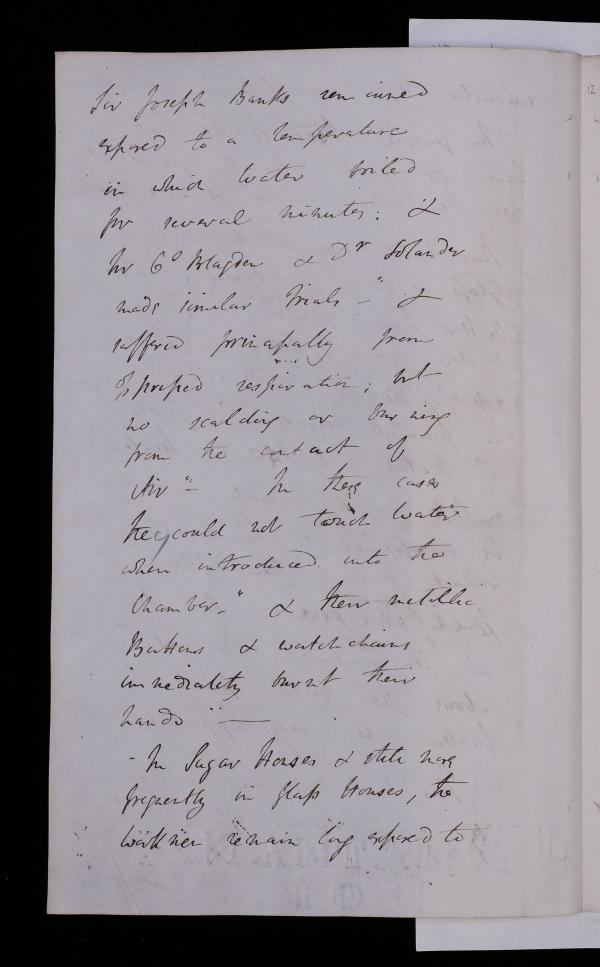 Sir Joseph Banks remained
exposed to a temperature
in which Water boiled
for several minutes: &
Dr Solander
made similar trials - " &
suffered principally from
oppressed respiration; but
no scalding or burning
from the contact of
Air" - In these cases
they could not touch Water
when introduced into the
Chamber - " & their metallic
Buttons & watch chains
immediately burnt their
hands" —
- In Sugar Houses & still more
frequently in Glass Houses, the
workmen remain long exposed to